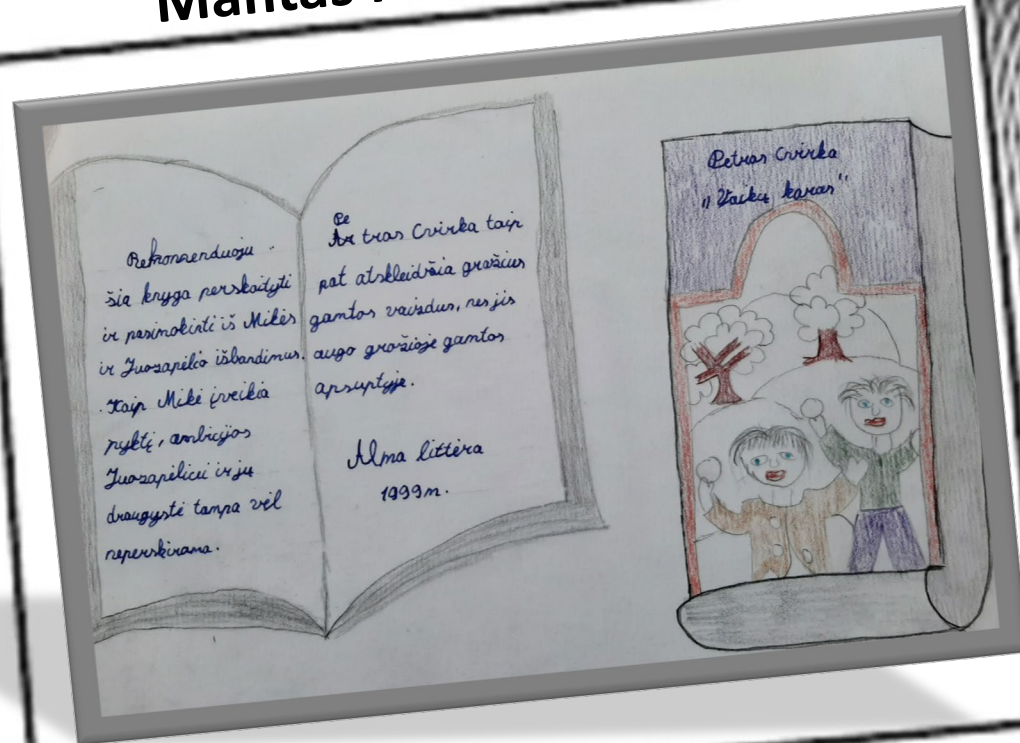 Mantas
Rekomenduoju
šia knyga perskaityti
ir pasimokinti iš Mikės
ir Juozapėlio išbandimus.
Kaip Mikė įveikia
pyktį, ambicijos
Juozapėliui ir jų
draugystė tampa vėl
neperskirama.
Pe
tras Cvirka taip
pat atskleidžia gražius
gamtos vaizdus, nes jis
augo gražioje gamtos
apsuptyje.
Alma littera
1999m.
Petras Cvirka
„Vaikų karas“